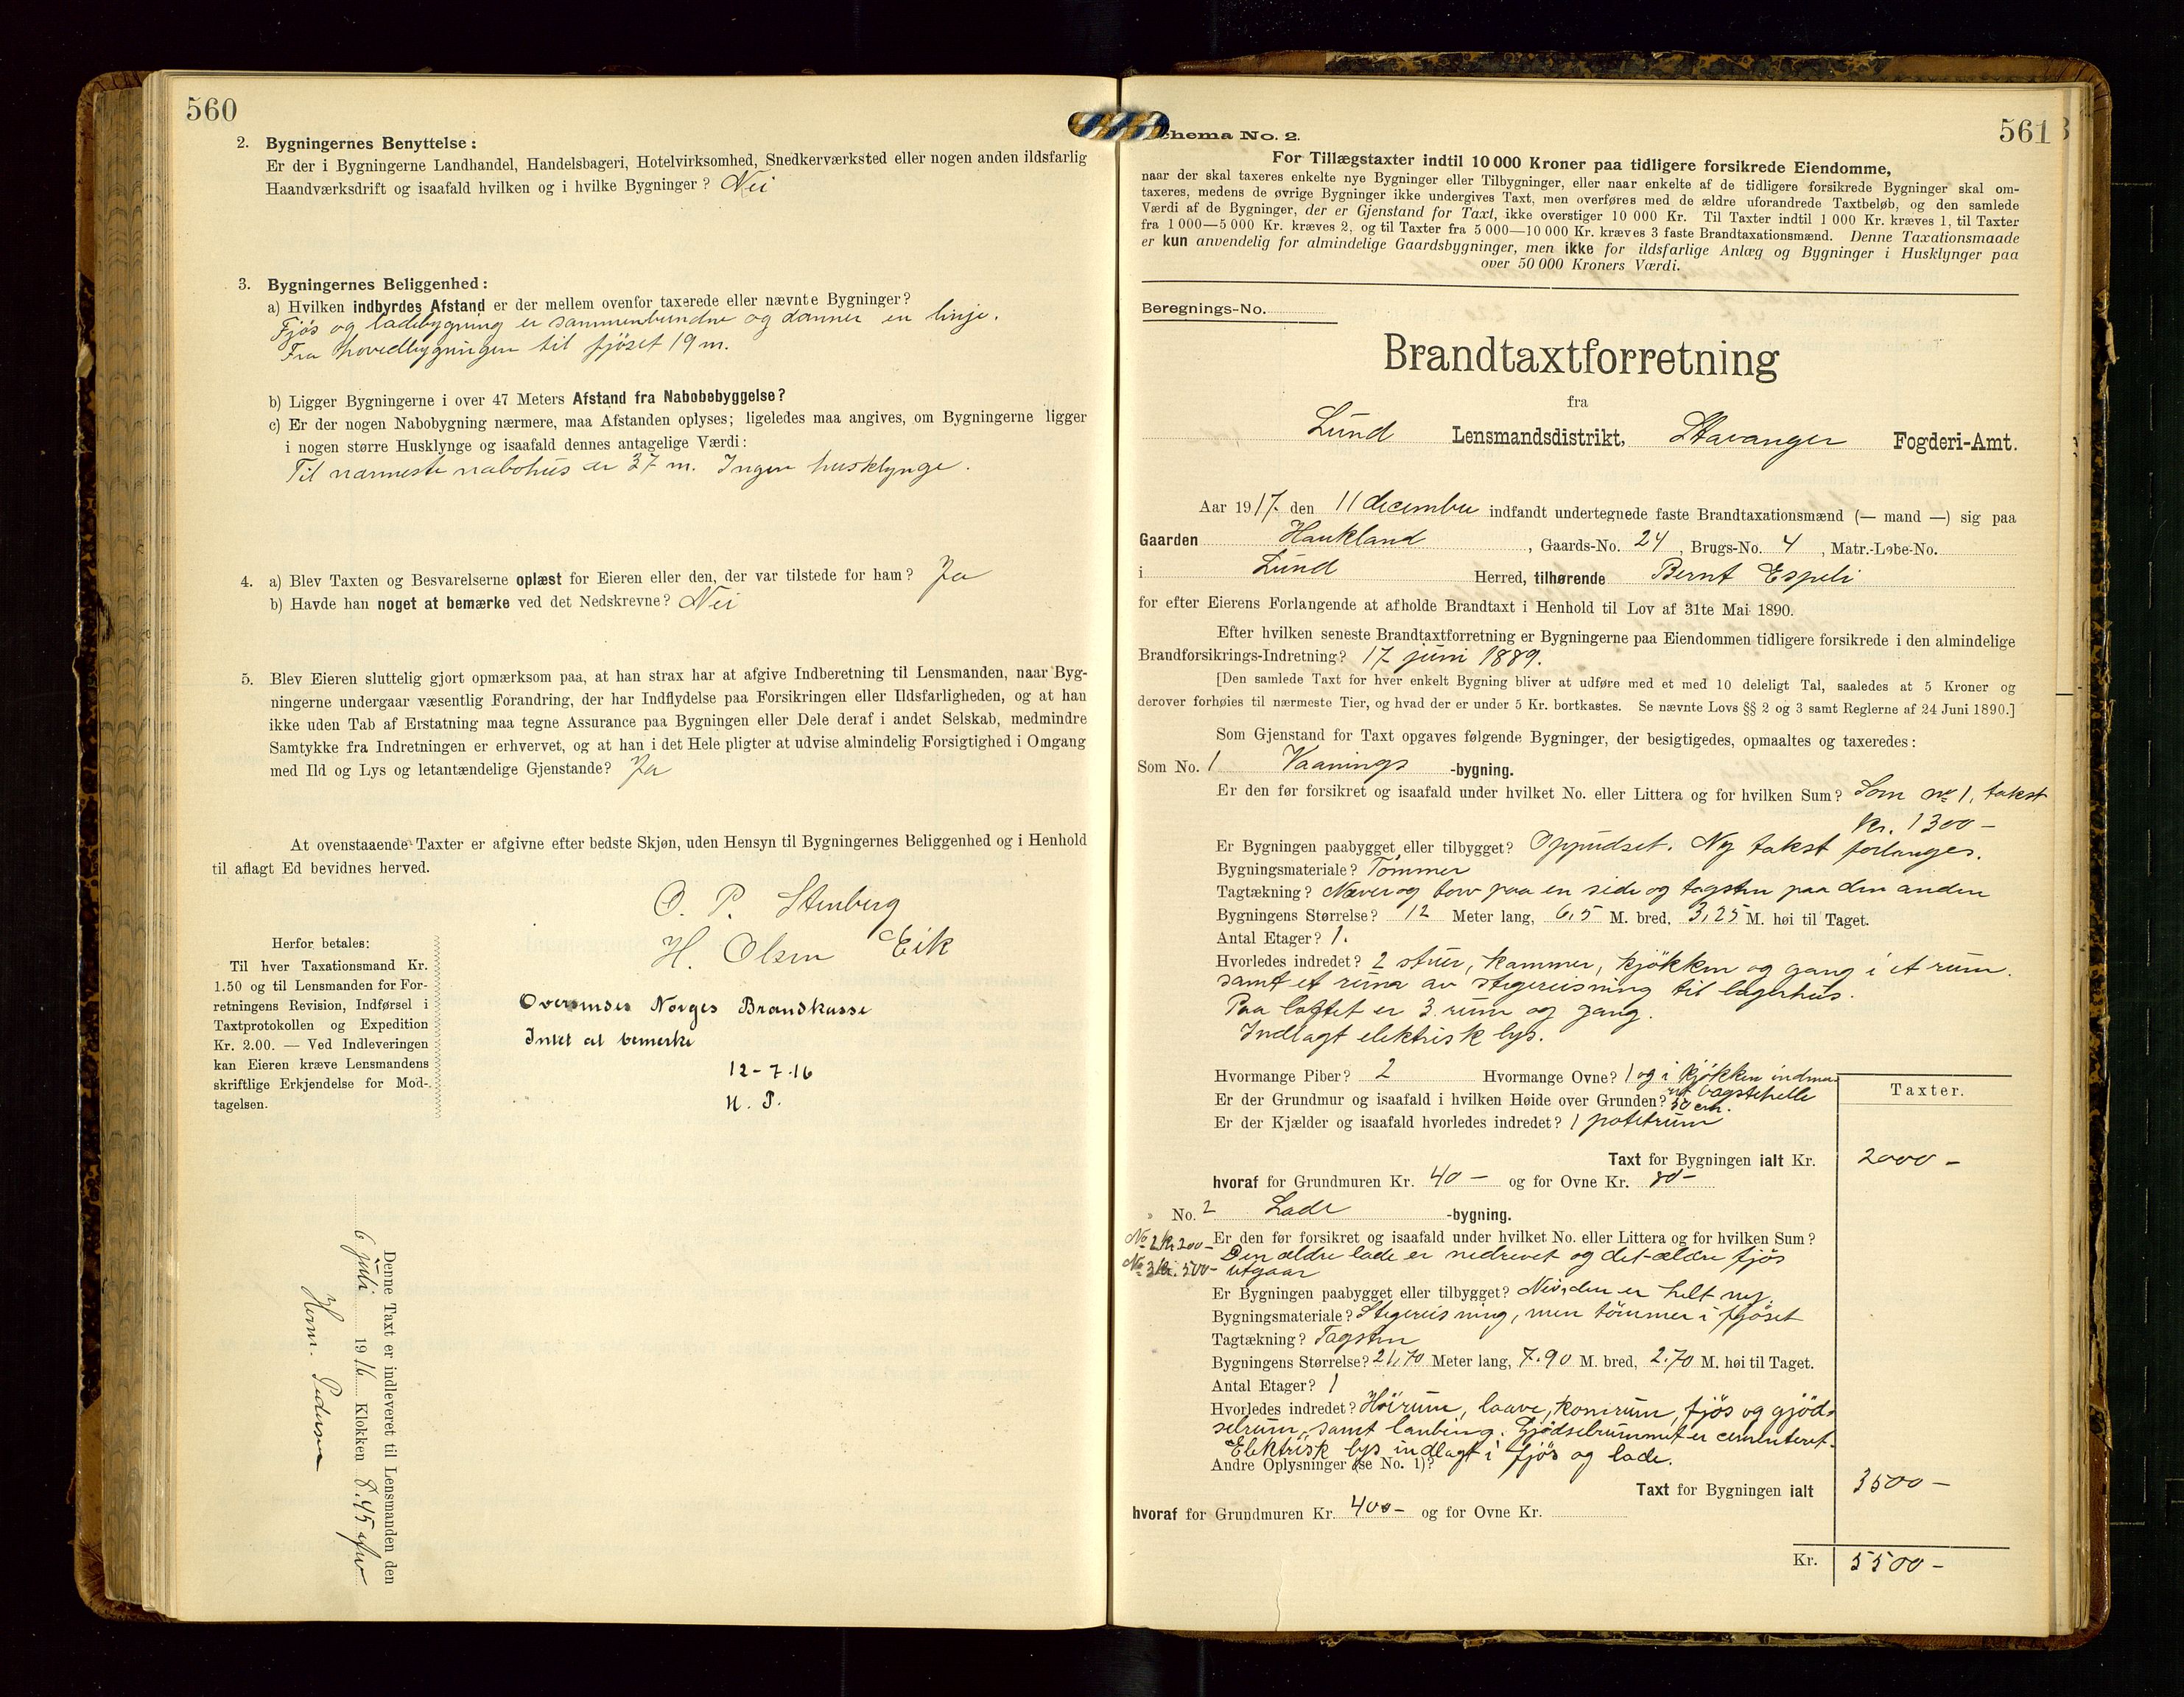 560
2. Bygningernes Benyttelse:
Er der i Bygningerne Landhandel, Handelsbageri, Hotelvirksomhed, Snedkerværksted eller nogen anden ildsfarlig
Haandværksdrift og isaafald hvilken og i hvilke Bygninger? Nei
3. Bygningernes Beliggenhed:
a) Hvilken indbyrdes Afstand er der mellem ovenfor taxerede eller nævnte Bygninger?
Fjøs og ladebygning er sammenbundne og danner en linje.
Fra hovedbygningen til fjøset 19 m.
b) Ligger Bygningerne i over 47 Meters Afstand fra Nabobebyggelse?
c) Er der nogen Nabobygning nærmere, maa Afstanden oplyses; ligeledes maa angives, om Bygningerne ligger
i nogen større Husklynge og isaafald dennes antagelige Værdi:
Til nærmeste nabohus er 37 m. Ingen husklynge.
4. a) Blev Taxten og Besvarelserne oplæst for Eieren eller den, der var tilstede for ham? Ja
b) Havde han noget at bemærke ved det Nedskrevne? Nei
5. Blev Eieren sluttelig gjort opmærksom paa, at han strax har at afgive Indberetning til Lensmanden, naar Byg-
ningerne undergaar væsentlig Forandring, der har Indflydelse paa Forsikringen eller Ildsfarligheden, og at han
ikke uden Tab af Erstatning maa tegne Assurance paa Bygningen eller Dele deraf i andet Selskab, medmindre
Samtykke fra Indretningen er erhvervet, og at han i det Hele pligter at udvise almindelig Forsigtighed i Omgang
med Ild og Lys og letantændelige Gjenstande? Ja
At ovenstaaende Taxter er afgivne efter bedste Skjøn, uden Hensyn til Bygningernes Beliggenhed og i Henhold
til aflagt Ed bevidnes herved.
O. P. Stenberg
H. Olsen Eik
Herfor betales:
Til hver Taxationsmand Kr.
1.50 og til Lensmanden for For-
retningens Revision, Indførsel i
Taxtprotokollen og Expedition
Kr. 2.00. — Ved Indleveringen
kan Eieren kræve Lensmandens
skriftlige Erkjendelse for Mod-
tagelsen.
Oversendes Norges Brandkasse
Intet at bemerke
12-7-16
H. P.
Denne Taxt er indleveret til Lensmanden den
6 juli 1916 Klokken 8.45
Herm. Pedersen
Schema No. 2.
561
For Tillægstaxter indtil 10 000 Kroner paa tidligere forsikrede Eiendomme,
naar der skal taxeres enkelte nye Bygninger eller Tilbygninger, eller naar enkelte af de tidligere forsikrede Bygninger skal om-
taxeres, medens de øvrige Bygninger ikke undergives Taxt, men overføres med de ældre uforandrede Taxtbeløb, og den samlede
Værdi af de Bygninger, der er Gjenstand for Taxt, ikke overstiger 10 000 Kr. Til Taxter indtil 1 000 Kr. kræves 1, til Taxter
fra 1 000—5 000 Kr. kræves 2, og til Taxter fra 5 000—10 000 Kr. kræves 3 faste Brandtaxationsmænd. Denne Taxationsmaade
er kun anvendelig for almindelige Gaardsbygninger, men ikke for ildsfarlige Anlæg og Bygninger i Husklynger paa
over 50 000 Kroners Værdi.
Beregnings-No.
Brandtaxtforretning
fra
Lund Lensmandsdistrikt, Stavanger Fogderi-Amt.
Aar 1917 den 11 december indfandt undertegnede faste Brandtaxationsmænd (— mand —) sig paa
Gaarden Haukland, Gaards-No. 24, Brugs-No. 4, Matr.-Løbe-No.
i Lund Herred, tilhørende Bernt Espeli
for efter Eierens Forlangende at afholde Brandtaxt i Henhold til Lov af 31te Mai 1890.
Efter hvilken seneste Brandtaxtforretning er Bygningerne paa Eiendommen tidligere forsikrede i den almindelige
Brandforsikrings-Indretning? 17 juni 1889.
[Den samlede Taxt for hver enkelt Bygning bliver at udføre med et med 10 deleligt Tal, saaledes at 5 Kroner og
derover forhøies til nærmeste Tier, og hvad der er under 5 Kr. bortkastes. Se nævnte Lovs §§ 2 og 3 samt Reglerne af 24 Juni 1890.]
Som Gjenstand for Taxt opgaves følgende Bygninger, der besigtigedes, opmaaltes og taxeredes:
Som No. 1 Vaanings -bygning.
Er den før forsikret og isaafald under hvilket No. eller Littera og for hvilken Sum? Som no 1, takst
kr. 1300-
Er Bygningen paabygget eller tilbygget? Oppudset. Ny takst forlanges.
Bygningsmateriale? Tømmer
Tagtækning? Næver og torv paa en side og tagsten paa den anden
Bygningens Størrelse? 12 Meter lang, 6,5 M. bred, 3,25 M. høi til Taget.
Antal Etager? 1.
Hvorledes indredet? 2 stuer, kammer, kjøkken og gang i et rum.
samt et rum av stegereisning til lagerhus.
Paa loftet er 3 rum og gang.
Indlagt elektrisk lys.
Hvormange Piber? 2 Hvormange Ovne? 1 og i kjøkken indmu-
ret bagstehelle
Er der Grundmur og isaafald i hvilken Høide over Grunden? 50 cm.
Er der Kjælder og isaafald hvorledes indredet? 1 potetrum
Taxter.
Taxt for Bygningen ialt Kr. 2000-
hvoraf for Grundmuren Kr. 40- og for Ovne Kr. 80-
» No. 2 Lade -bygning.
Er den før forsikret og isaafald under hvilket No. eller Littera og for hvilken Sum?
No 2 kr 200- Den ældre lade er nedrevet og det ældre fjøs
No 3 kr. 500- utgaar
Er Bygningen paabygget eller tilbygget? Nei, den er helt ny.
Bygningsmateriale? Stegereisning, men tømmer i fjøset
Tagtækning? Tagsten
Bygningens Størrelse? 21,70 Meter lang, 7.90 M. bred, 2.70 M. høi til Taget.
Antal Etager? 1
Hvorledes indredet? Høirum, laave, kornrum, fjøs og gjød-
selrum, samt løubing. Gjødselrummet er cementeret.
Elektrisk lys indlagt i fjøs og lade.
Andre Oplysninger (se No. 1)?
Taxt for Bygningen ialt 3500-
hvoraf for Grundmuren Kr. 400- og for Ovne Kr.
Kr. 5500-